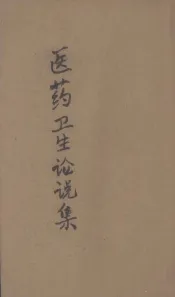 医药卫生论说集